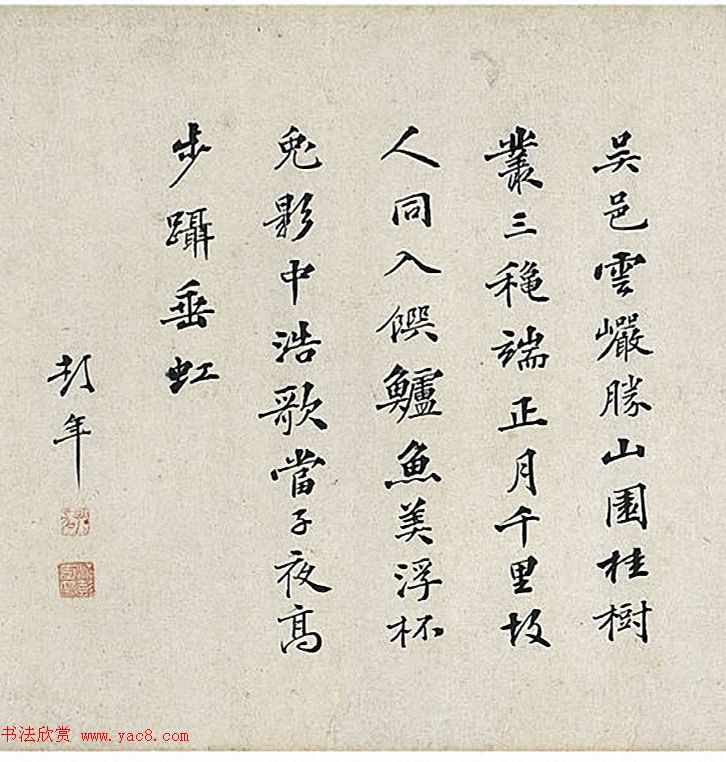 吳邑雲巗勝山園桂樹
叢三穐端正月千里故
人同入饌鱸魚美浮杯
兔影中浩歌當子夜高
步躡垂虹
彭年
书法欣赏 www.yac8.com